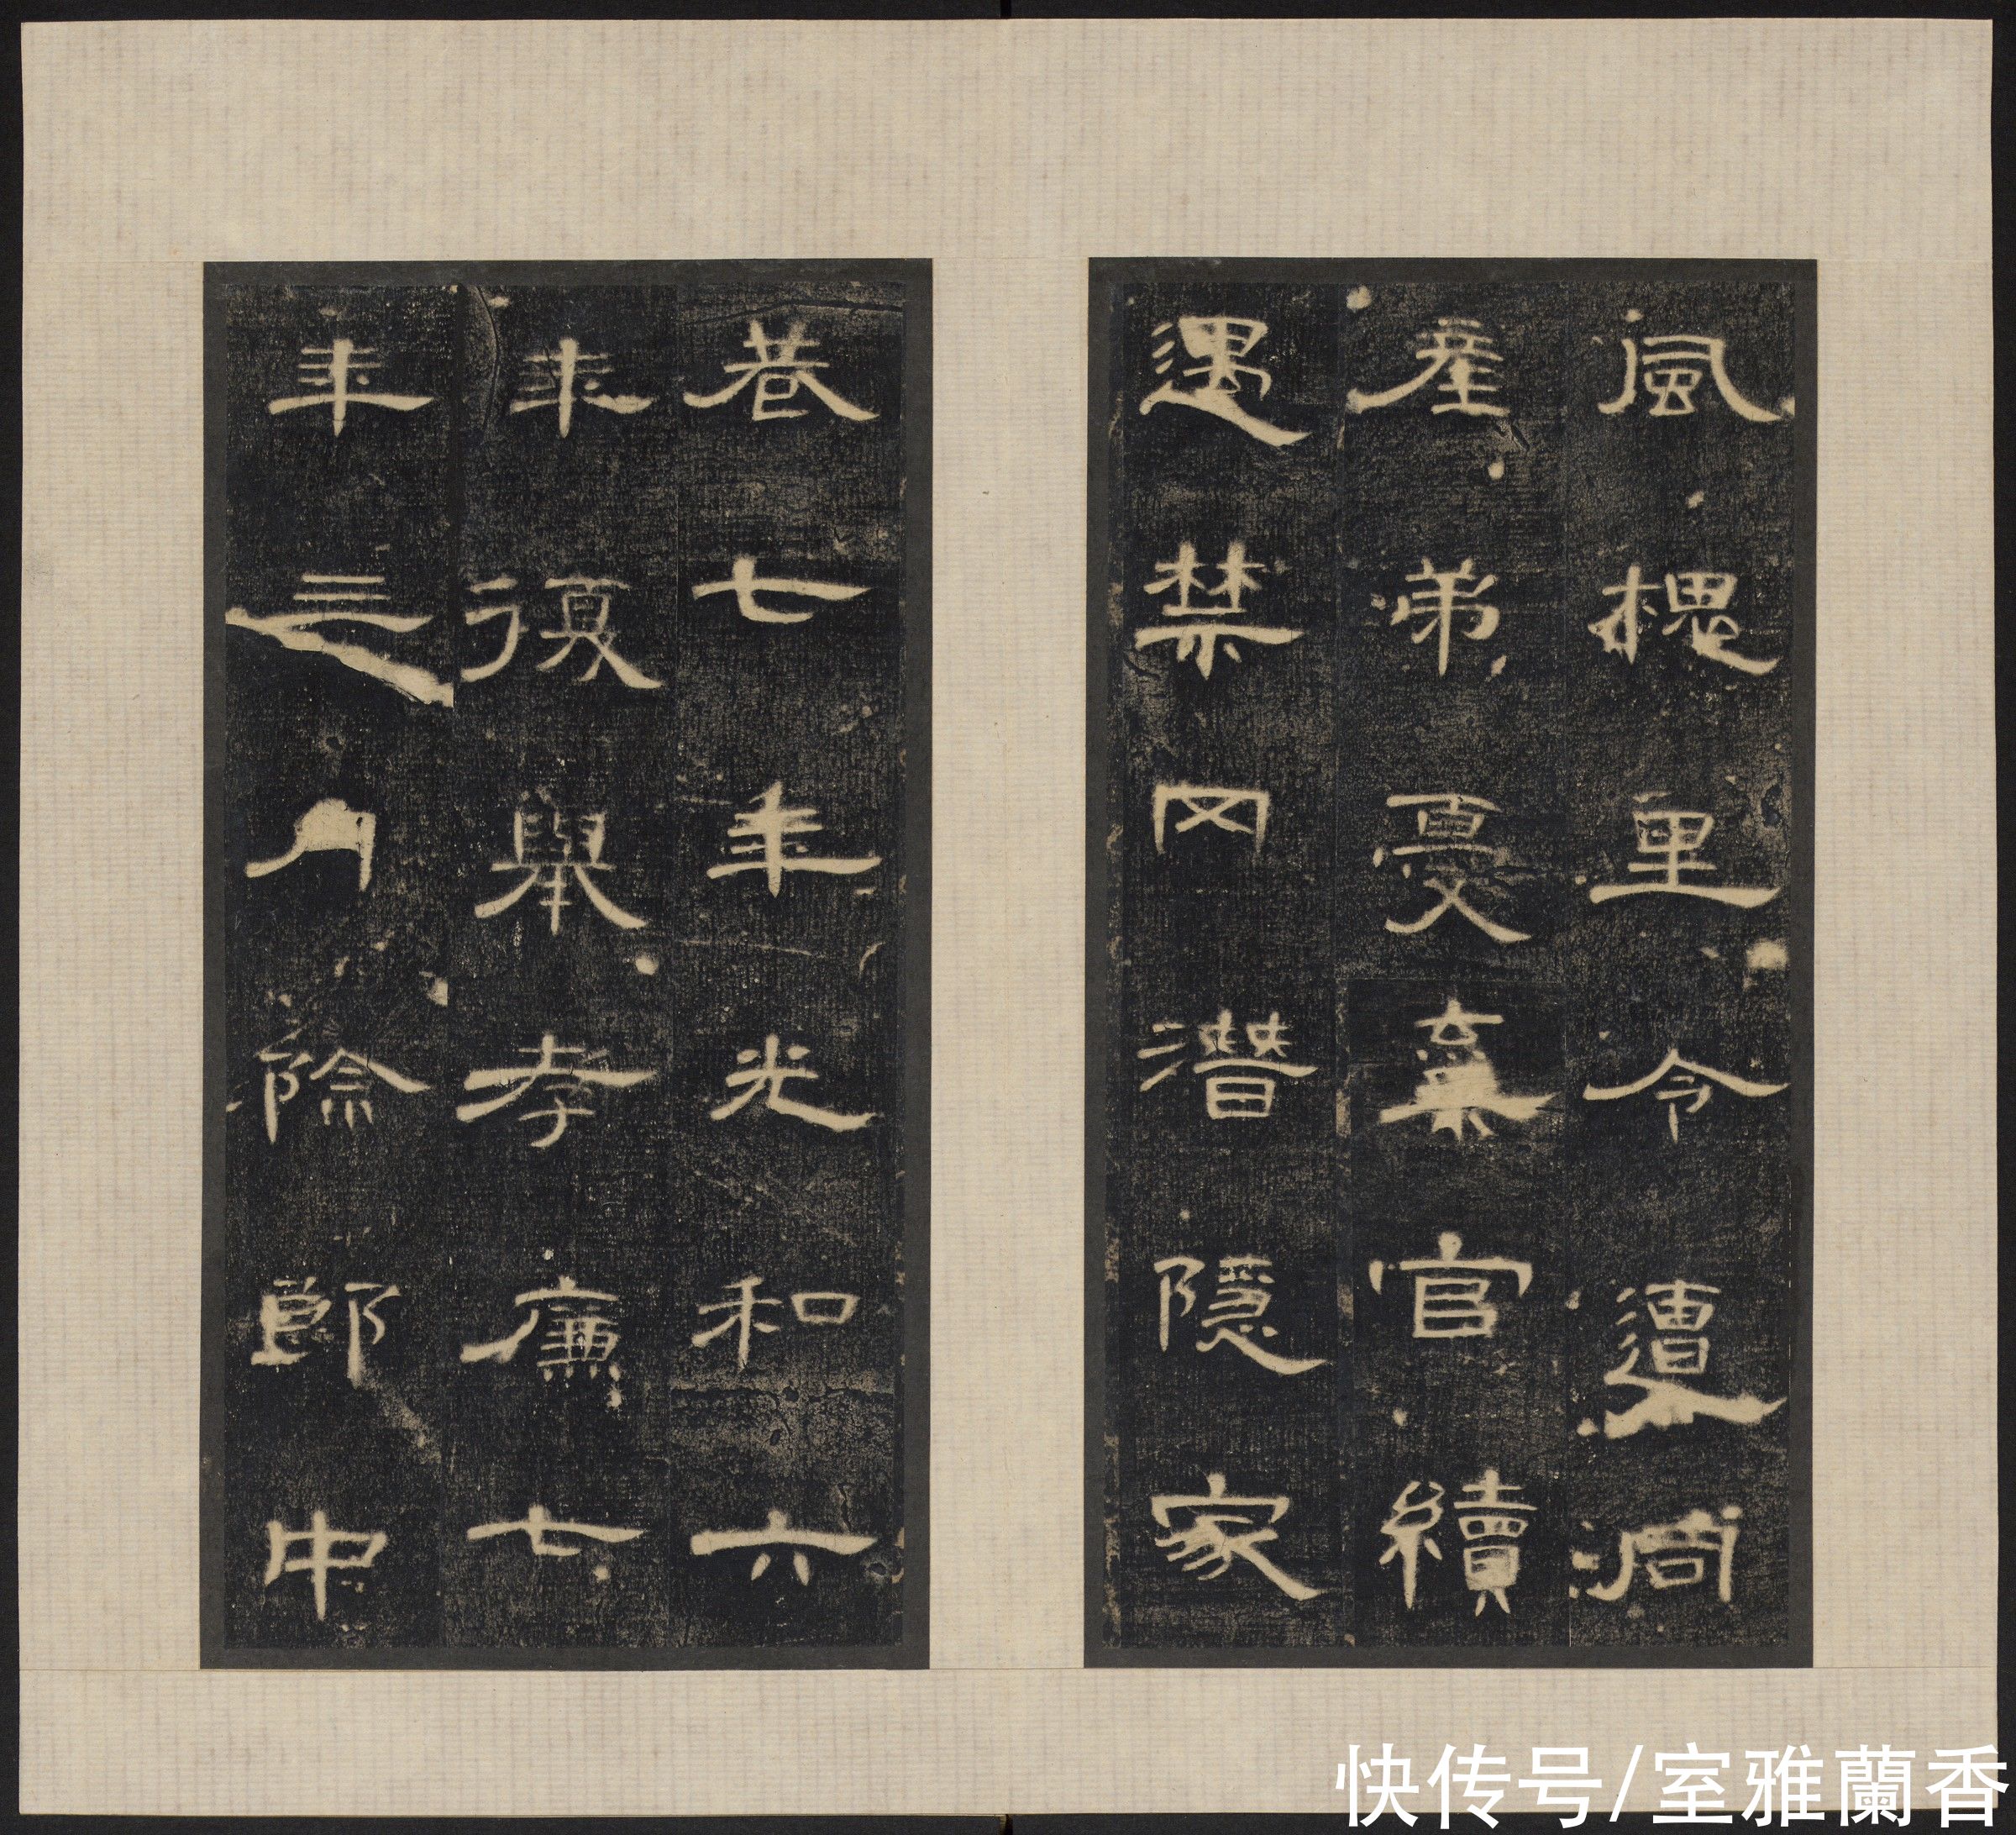 風槐里令遭同
產弟憂棄官續
遇禁冈潛隱家
巷七年光和六
年復舉孝廉七
年三月除郎中
快传号/室雅蘭香